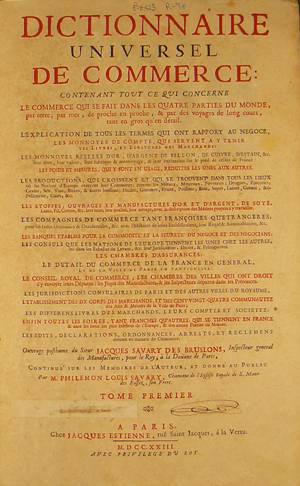 DICTIONNAIRE
UNIVERSEL
DE COMMERCE:
CONTENANT TOUT CE QUI CONCERNE
LE COMMERCE QUI SE FAIT DANS LES QUATRE PARTIES DU MONDE,
par terre, par mer, de proche en proche, & par des voyages de long cours,
tant en gros qu'en détail.
L'EXPLICATION DE TOUS LES TERMES QUI ONT RAPPORT AU NEGOCE,
LES MONNOYES DE COMPTE, QUI SERVENT A Y TENIR
LES LIVRES, ET ECRITURES DES MARCHANDS:
LES MONNOYES REELLES D'OR, D'ARGENT, DE BILLON, DE CUIVRE, D'ESTAIN, &c.
LES POIDS ET MESURES, QUI Y SONT EN USAGE, REDUITES LES UNES AUX AUTRES.
LES PRODUCTIONS, QUI CROISSENT ET QUI SE TROUVENT DANS TOUS LES LIEUX
LES ETOFFES, OUVRAGES ET MANUFACTURES D'OR ET D'ARGENT, DE SOYE,
LES COMPAGNIES DE COMMERCE TANT FRANÇOISES QU'ETRANGERES,
LES BANQUES ETABLIES POUR LA COMMODITE ET LA SURETE' DU NEGOCE ET DES NEGOCIANS;
LES CONSULS QUE LES NATIONS DE L'EUROPE TIENNENT LES UNES CHEZ LES AUTRES,
LES CHAMBRES D'ASSURANCES:
LE DETAIL DU COMMERCE DE LA FRANCE EN GENERAL,
ET DE LA VILLE DE PARIS EN PARTICULIER;
LE CONSEIL ROYAL DE COMMERCE, LES CHAMBRES DES VILLES QUI ONT DROIT
LES JURISDICTIONS CONSULAIRES DE PARIS ET DES AUTRES VILLES DU ROYAUME,
L'ETABLISSEMENT DES SIX CORPS DES MARCHANDS, ET DES CENT VINGT QUATRE COMMUNAUTEZ
des Arts & Metiers de la Ville de Paris:
LES DIFFERENS LIVRES DES MARCHANDS, LEURS COMPTES ET SOCIETEZ.
ENFIN TOUTES LES FOIRES, TANT FRANCHES QU'AUTRES, QUI SE TIENNENT EN FRANCE,
LES EDITS, DECLARATIONS, ORDONNANCES, ARRESTS, ET REGLEMENS
Ouvrage posthume du Sieur JACQUES SAVARY DES BRUSLONS, Inspecteur general
des Manufactures, pour le Roy, à la Douane de Paris,
CONTINUÉ SUR LES MEMOIRES DE L'AUTEUR, ET DONNÉ AU PUBLIC
Par M. PHILEMON LOUIS SAVARY, Chanoine de l'Eglise Royale de S. Maur
des Fossez, son Frere.
TOME PREMIER
A PARIS,
Chez JACQUES ESTIENNE, ruë Saint Jacques, à la Vertu.
M. DCC. XXIII.
AVEC PRIVILEGE DU ROY.